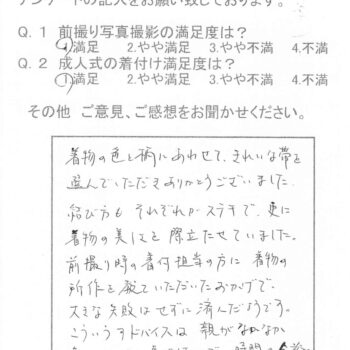 アンケートの記入をお願い致しております。
Q. 1 前撮り写真撮影の満足度は?
1.満足 2.やや満足 3.やや不満 4.不満
Q. 2 成人式の着付け満足度は?
1.満足 2.やや満足 3.やや不満 4.不満
その他 ご意見、ご感想をお聞かせください。
着物の色と柄にあわせて、きれいな帯を
選んでいただきありがとうございました。
結び方も それぞれがステキで、更に
着物の美しさを 際立たせていました。
前撮り時の着付担当の方に 着物の
所作を 教えていただいたおかげで、
大きな失敗はせずに 済んだようです。
こういうアドバイスは 親がなかなか